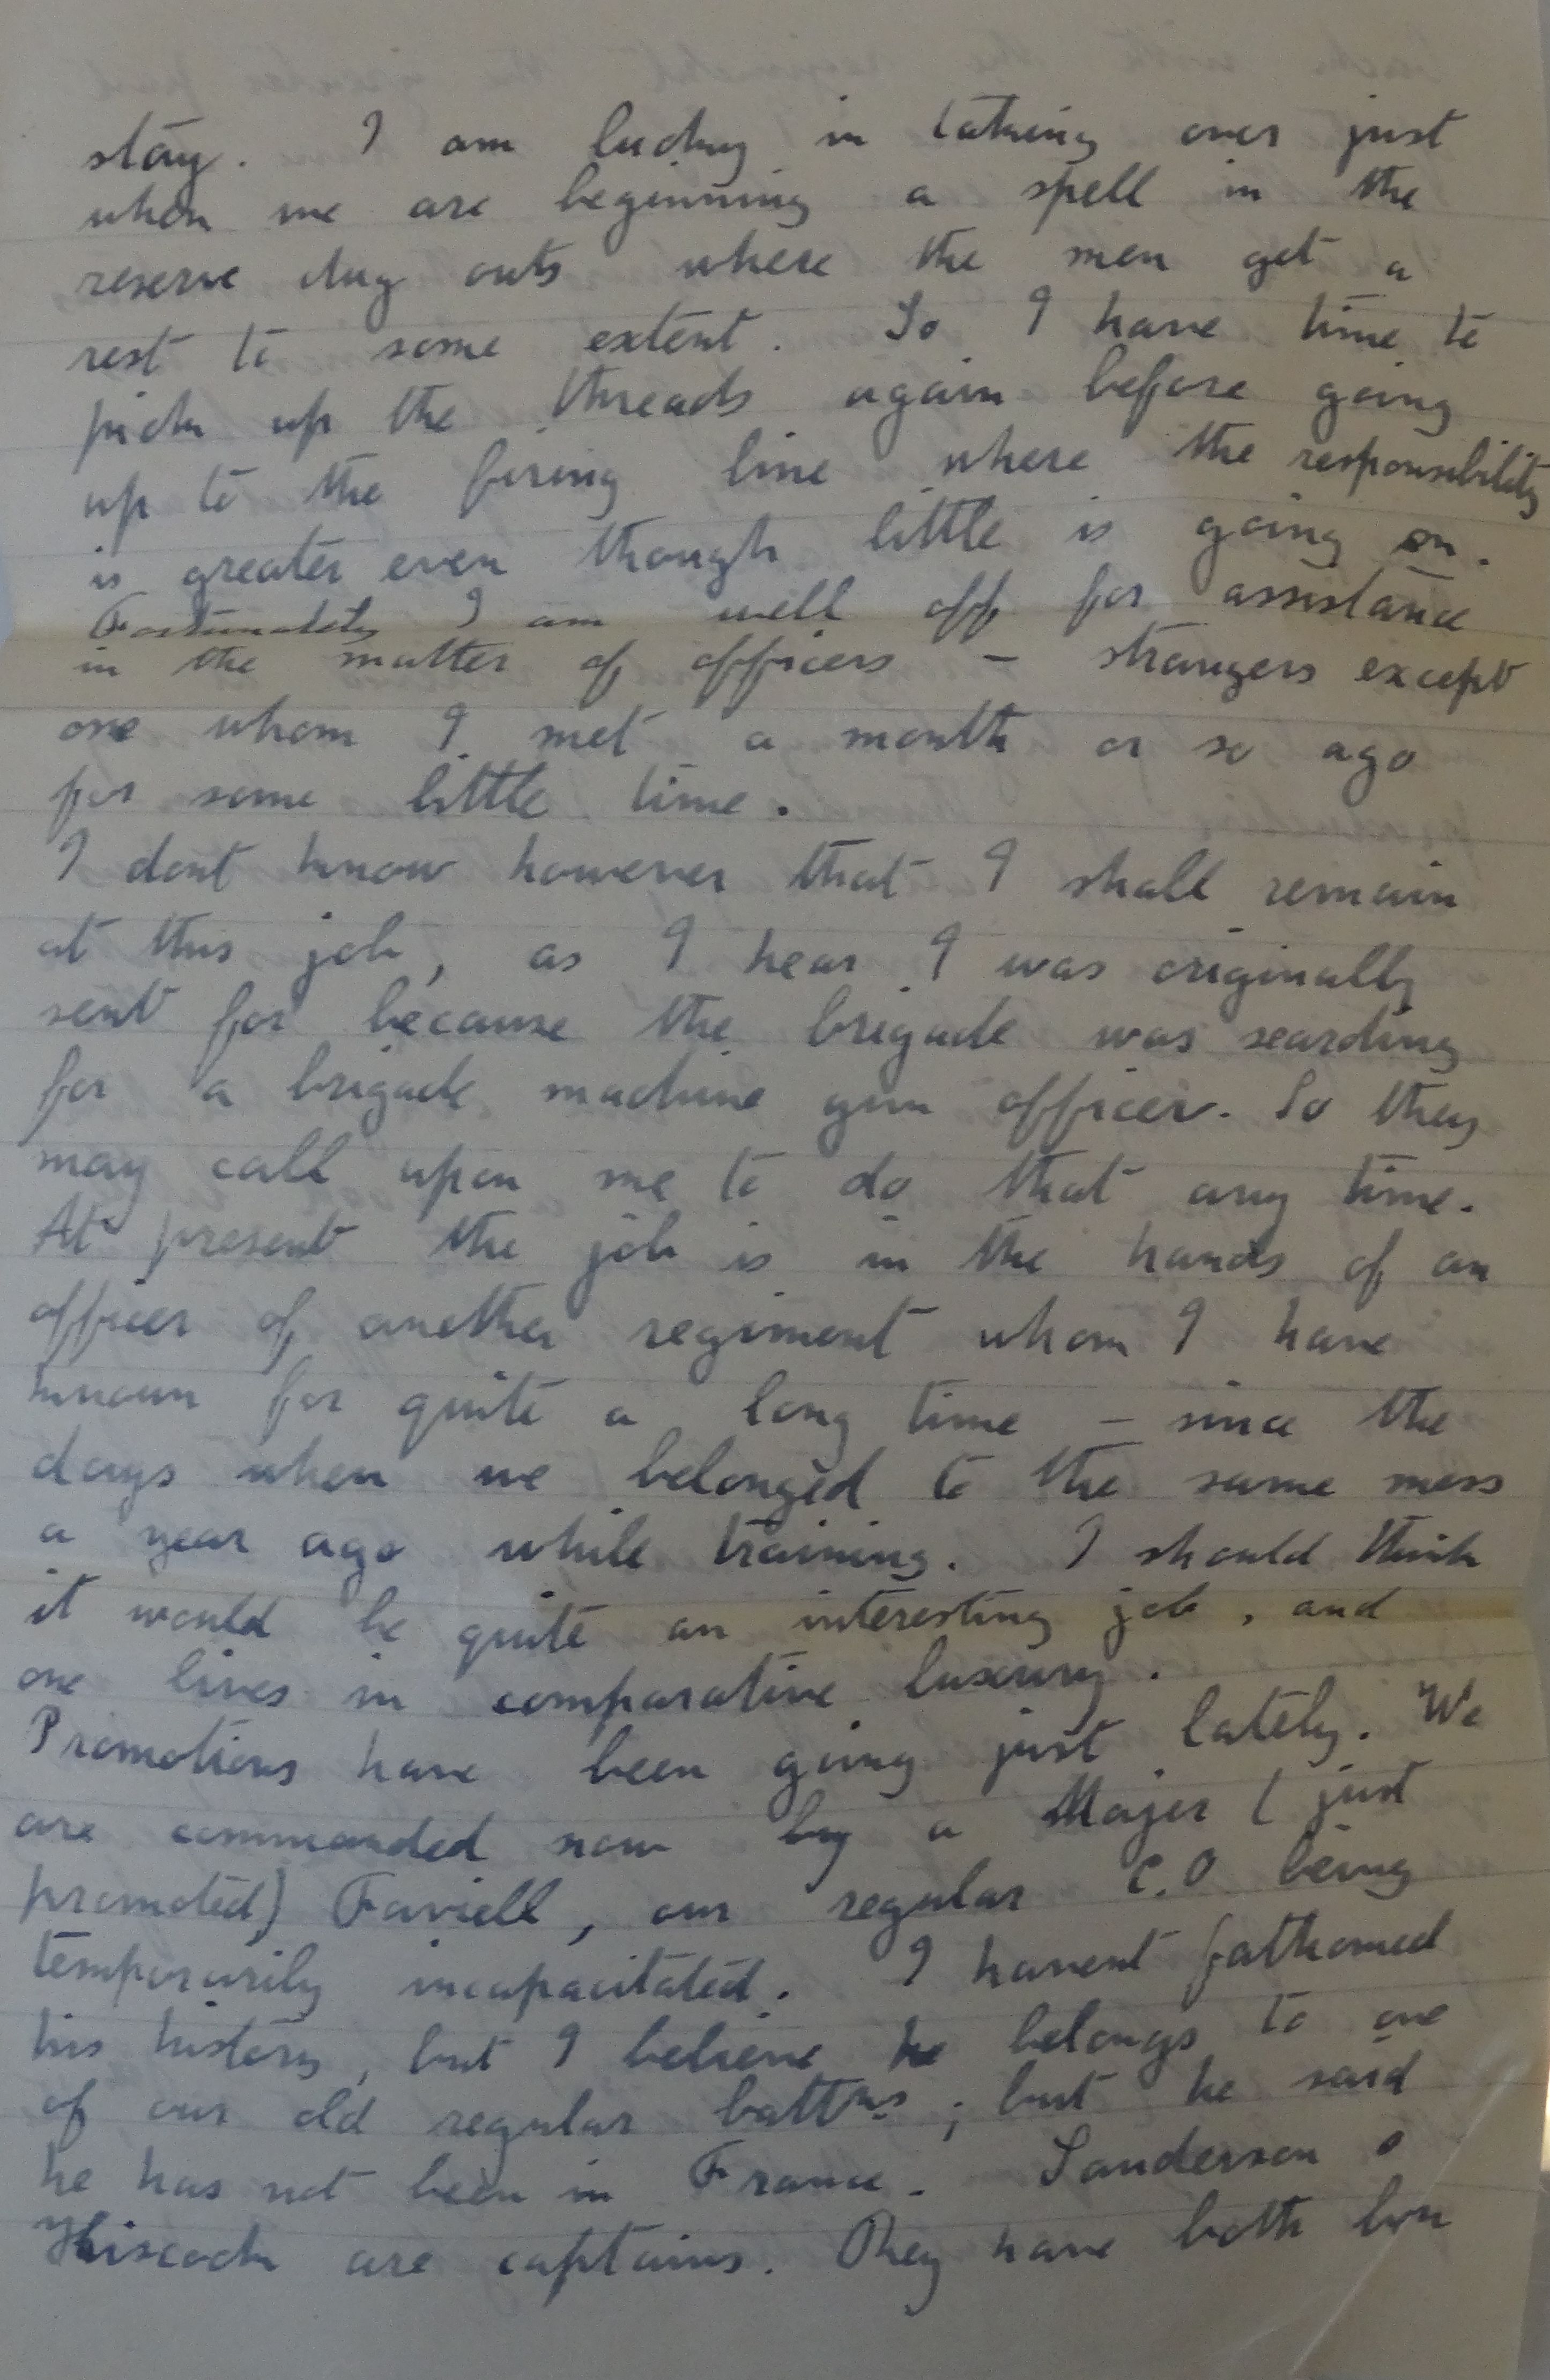 stay. I am lucky in taking over just
when we are beginning a spell in the
reserve dug outs where the men get a
rest to some extent. So I have time to
pick up the threads again before going
up to the firing line where the responsibility
is greater even though little is going on.
Fortunately I am well off for assistance
in the matter of officers – strangers except
one whom I met a month or so ago
for some little time.
I dont know however that I shall remain
at this job, as I hear I was originally
sent for because the brigade was searching
for a brigade machine gun officer. So they
may call upon me to do that any time.
At present the job is in the hands of an
officer of another regiment whom I have
known for quite a long time – since the
days when we belonged to the same mess
a year ago while training. I should think
it would be quite an interesting job, and
one lives in comparative luxury.
Promotions have been going just lately. We
are commanded now by a Major (just
promoted) Faviell, our regular C.O being
temporarily incapacitated. I havent fathomed
his history, but I believe he belongs to one
of our old regular battns; but he said
he has not been in France. Sanderson &
Hiscock are captains. They have both been